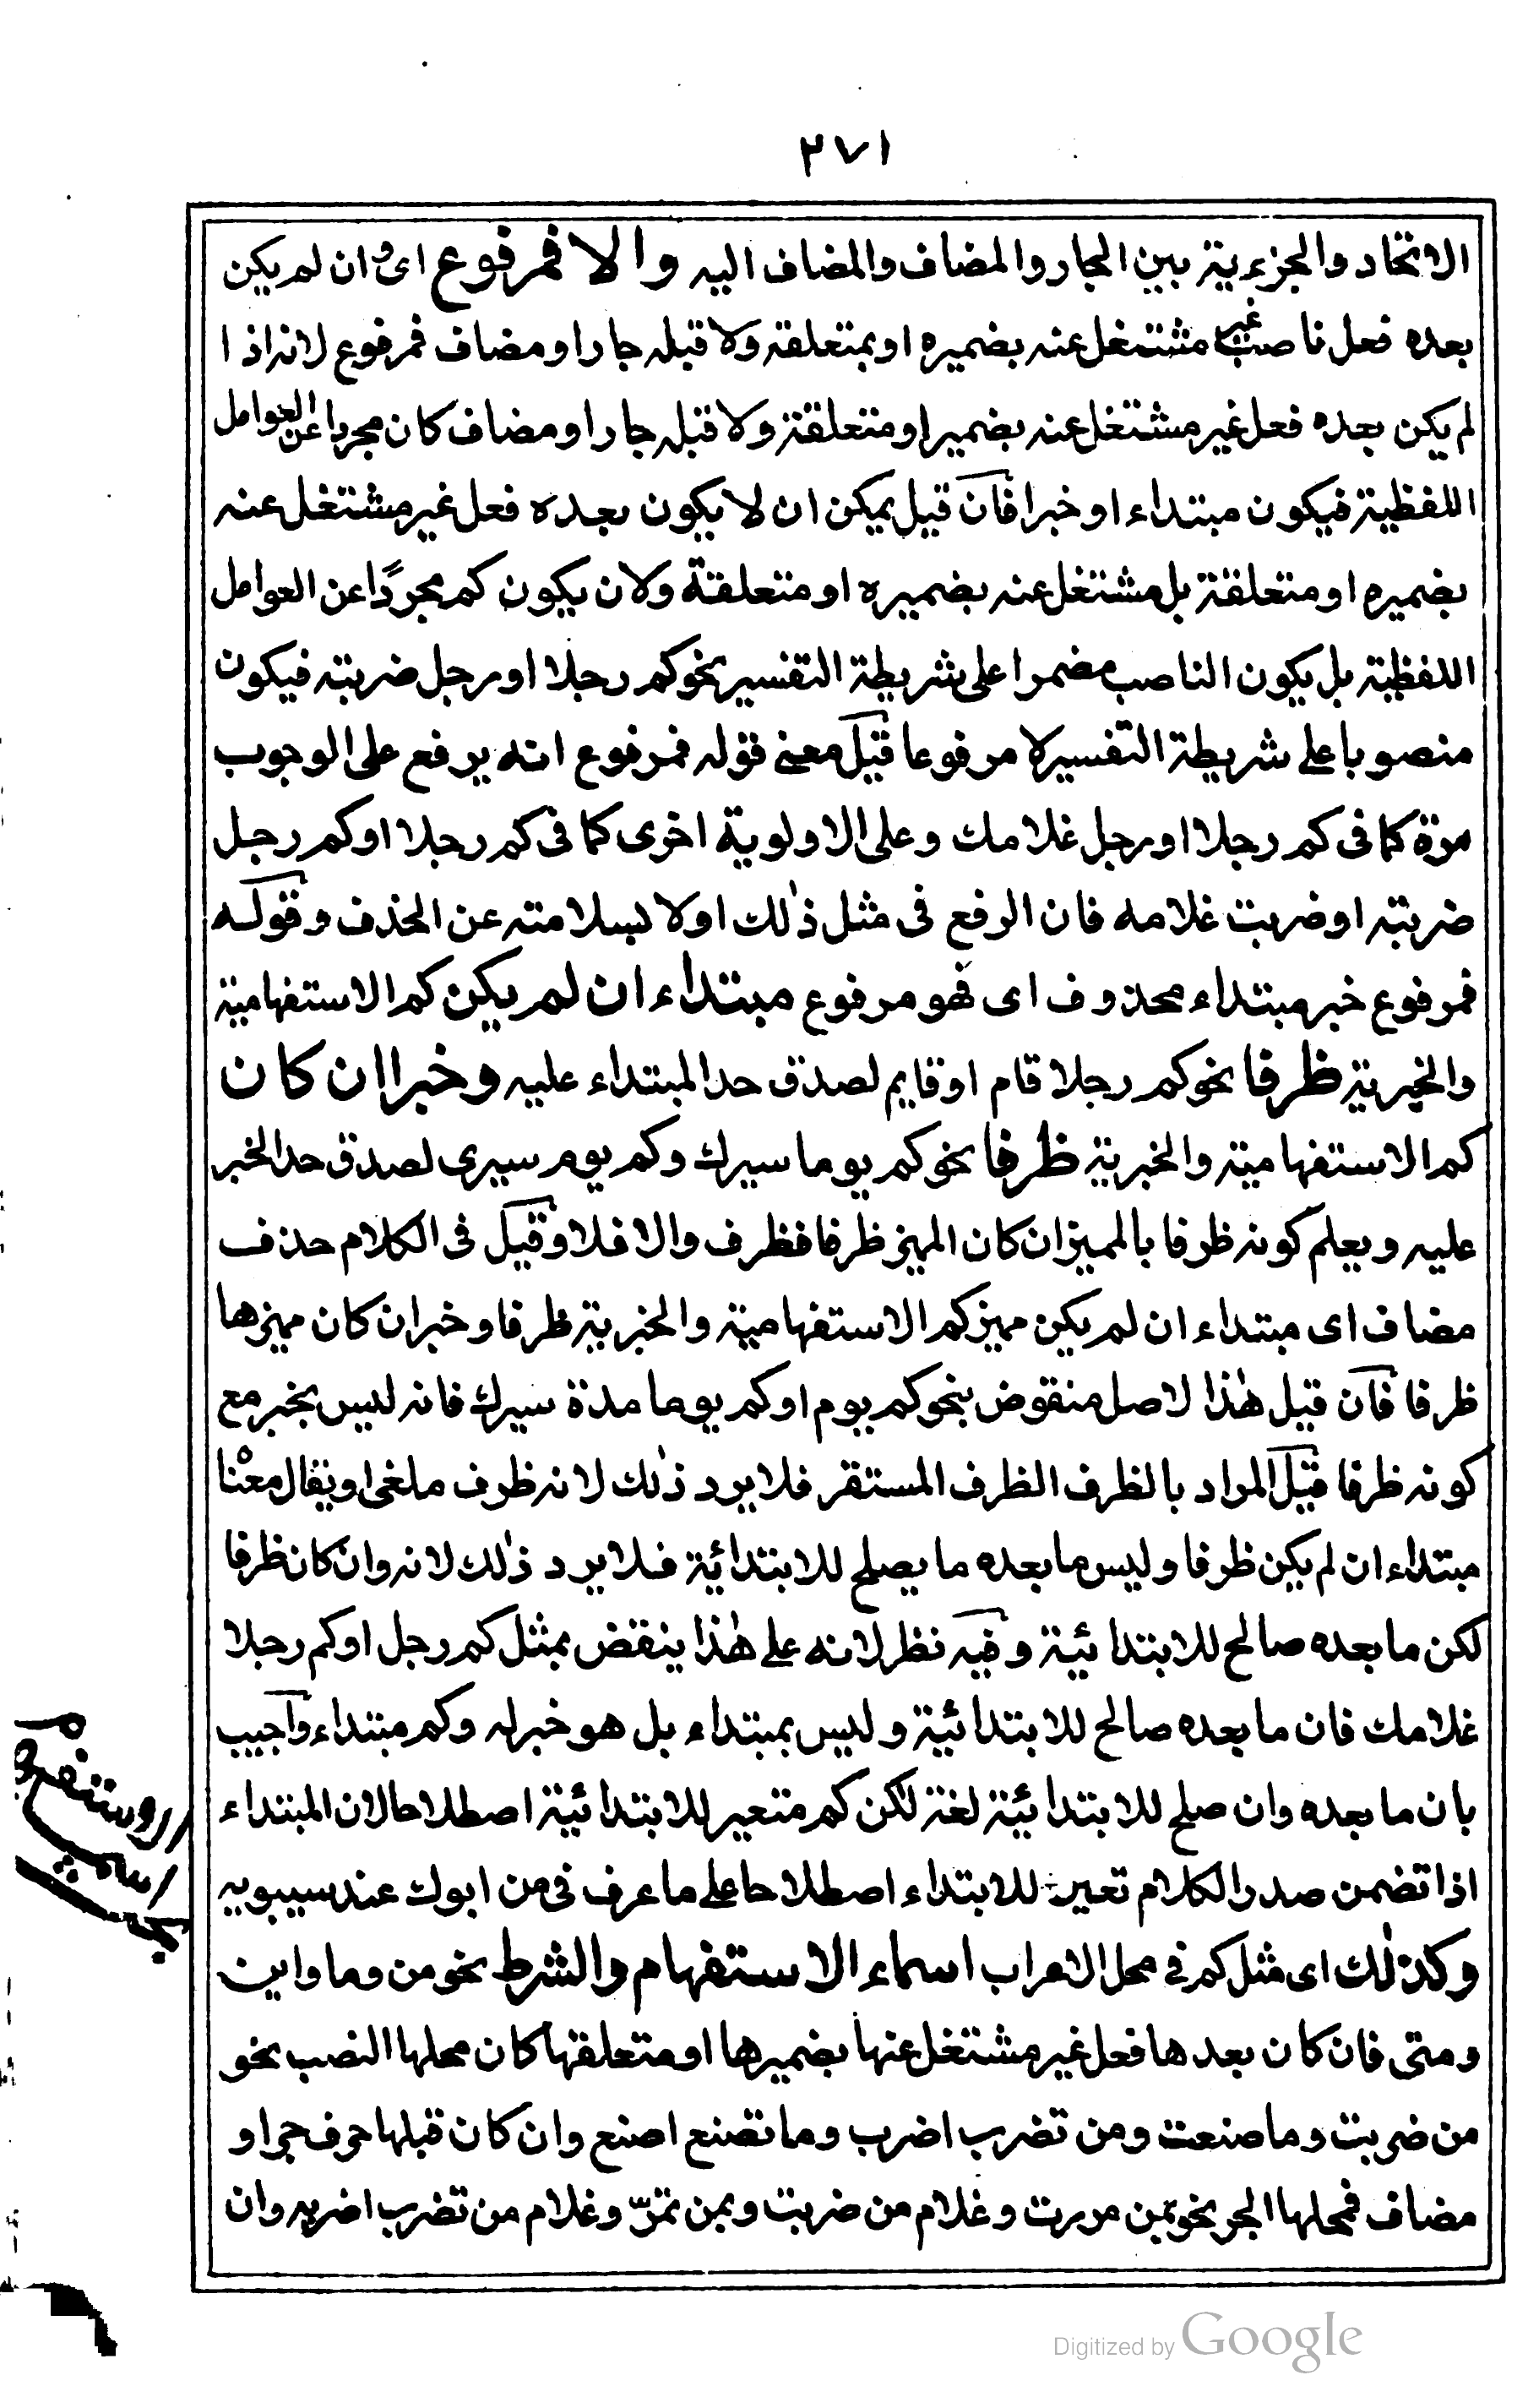 ٢٧١
الاتحاد والجزءية بين الجار والمضاف والمضاف اليه والا فمرفوع اى وان لم يكن
بعده فعل ناصب غير مشتغل عنه بضميره او بمتعلقة ولا قبله جار او مضاف فمرفوع لانه اذا
لم يكن بعده فعل غير مشتغل عنه بضميره او متعلقة ولا قبله جار او مضاف كان مجردا عن العوامل
اللفظية فيكون مبتداء او خبرا فان قيل يمكن ان لا يكون بعده فعل غير مشتغل عنه
بضميره او متعلقة بل مشتغل عنه بضميره او متعلقة ولان يكون كم مجردًا عن العوامل
اللفظية بل يكون الناصب مضمرا على شريطة التفسير نحو كم رجلا او رجل ضربته فيكون
منصوبا على شريطة التفسير لا مرفوعا قيل معنى قوله فمرفوع انه يرفع على الوجوب
مرة كما فى كم رجلا او رجل غلامك وعلى الاولوية اخرى كما فى كم رجلا او كم رجل
ضربته او ضربت غلامه فان الرفع فى مثل ذلك اولا لسلامته عن الحذف وقوله
فمرفوع خبر مبتداء محذوف اى فهو مرفوع مبتداء ان لم يكن كم الاستفهامية
والخبرية ظرفا نحو كم رجلا قام او قايم لصدق حد المبتداء عليه وخبرا ان كان
كم الاستفهامية والخبرية ظرفا نحو كم يوما سيرك وكم يوم سيرى لصدق حد الخبر
عليه ويعلم كونه ظرفا بالمميز ان كان المميز ظرفا فظرف والا فلا وقيل فى الكلام حذف
مضاف اى مبتداء ان لم يكن مميز كم الاستفهامية والخبرية ظرفا وخبر ان كان مميزها
ظرفا فان قيل هذا لاصل منقوض بنحو كم يوم او كم يوما مدة سيرك فانه ليس بخبر مع
كونه ظرفا قيل المراد بالظرف الظرف المستقر فلا يرد ذلك لانه ظرف ملغى او يقال معناه
مبتداء ان لم يكن ظرفا وليس ما بعده ما يصلح للابتدائية فلا يرد ذلك لانه وان كان ظرفا
لكن ما بعده صالح للابتدائية وفيه نظر لانه على هذا ينقض بمثل كم رجل او كم رجلا
غلامك فان ما بعده صالح للابتدائية وليس بمبتداء بل هو خبر له وكم مبتداء واجيب
بان ما بعده وان صلح للابتدائية لغة لكن كم متعير للابتدائية اصطلاحا لان المبتداء
اذا تضمن صدر الكلام تعير للابتداء اصطلاحا على ما عرف فى من ابوك عند سيبويه
وكذلك اى مثل كم فى محل الاعراب اسماء الاستفهام والشرط نحو من وما واين
ومتى فان كان بعدها فعل غير مشتغل عنها بضميرها او متعلقها كان محلها النصب نحو
من ضربت وما صنعت ومن تضرب اضرب وما تصنع اصنع وان كان قبلها حرف جر او
مضاف فمحلها الجر نحو بمن مررت وغلام من ضربت وبمن تمرّ وغلام من تضرب اضربه وان
Digitized by Google